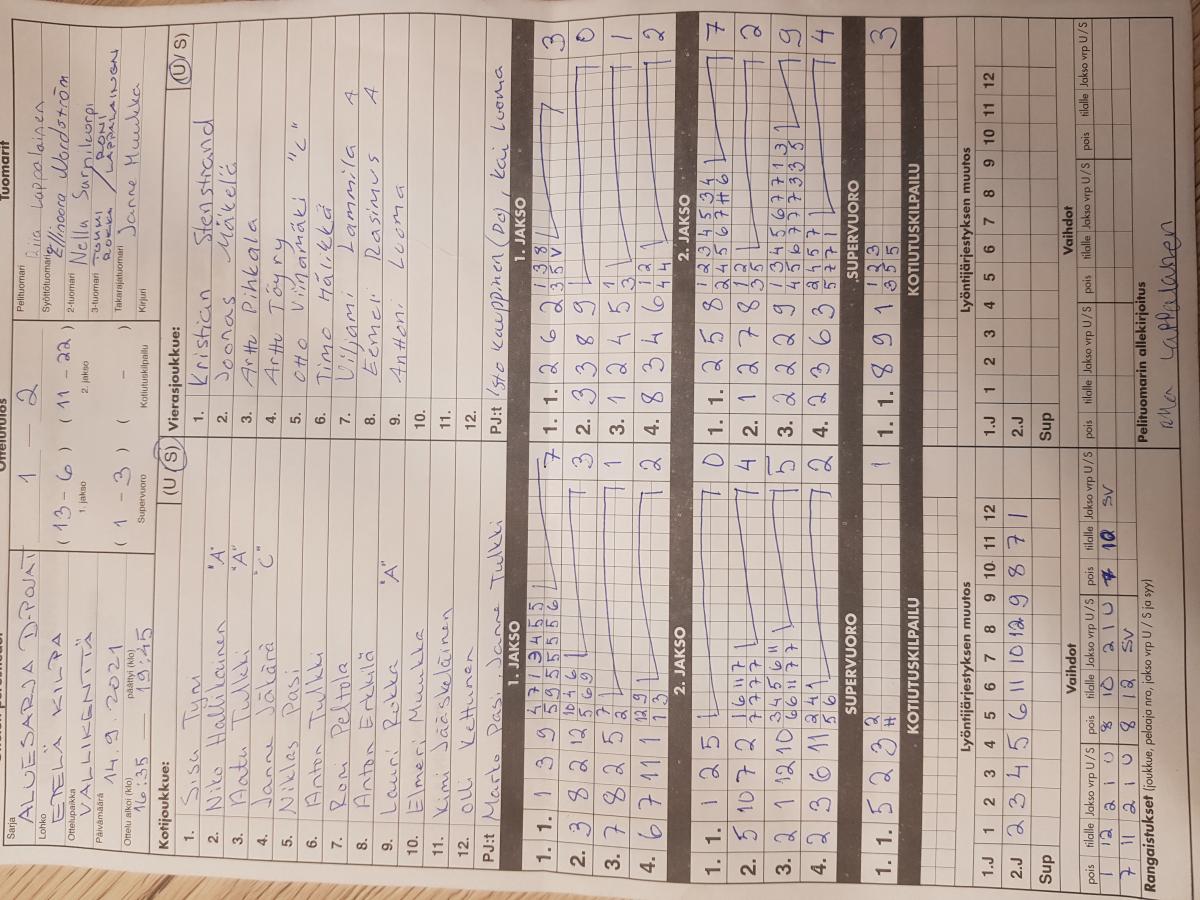 Sarja
ALUESARJA D-POJAT
Lohko
ETELÄ KILPA
Ottelupaikka
VALLIKENTTÄ
Päivämäärä
14.9.2021
Ottelu alkoi (klo) päättyi (klo)
16:35 19:45
Ottelutulos
1 — 2
(13 - 6) (11 - 22)
1. jakso 2. jakso
(1 - 3) ( - )
Supervuoro Kotiutuskilpailu
Tuomarit
Pelituomari Riia Lappalainen
Syöttötuomari Ellinoora Nordström
2-tuomari Nella Sarnikorpi
3-tuomari
Takarajatuomari
Kirjuri Janne Muukka
Kotijoukkue: (U/S)
1. Sisu Tyni
2. Niko Hallilainen "A"
3. Aatu Tulkki "A"
4. Janne Jälärä "C"
5. Niklas Pasi
6. Anton Tulkki
7. Roni Peltola
8. Anton Erkkilä
9. Lauri Rokka "A"
10. Elmeri Muukka
11. Kimi Jääskeläinen
12. Olli Kettunen
PJ:t Marko Pasi, Janne Tulkki
Vierasjoukkue: (U/S)
1. Kristian Stenstrand
2. Joonas Mäkelä
3. Arttu Pihkala
4. Arttu Töyry
5. Otto Viinamäki "C"
6. Timo Hälikkä
7. Viljami Lammila 4
8. Eemeli Rasimus 4
9. Anttoni Luoma
10.
11.
12.
PJ:t Isto Kauppinen (Do), Kai Luoma
1. JAKSO
1. 1. 1 3 9 4 7 1 3 4 5 5 7
5 9 5 5 5 5 6
2. 3 8 2 12 10 4 6 3
5 6 9
3. 7 8 2 5 7 1
2
4. 6 7 11 1 12 9 2
1 3
2. JAKSO
1. 1. 1 2 5 0
2. 5 10 7 2 1 6 11 7 4
7 7 7 7
3. 2 1 12 10 3 4 5 6 11 5
6 6 11 7 7
4. 2 3 6 11 2 4 1 2
5 6
SUPERVUORO
1. 1. 5 2 3 2 1
#
KOTIUTUSKILPAILU
1. JAKSO
1. 1. 2 6 2 1 3 8 7 3
3 5 V
2. 3 3 8 9 0
3. 1 2 4 5 1 1
3
4. 8 3 4 6 1 2 2
4 4
2. JAKSO
1. 1. 2 5 8 1 2 3 4 5 3 4 7
2 4 5 6 7 # 6
2. 1 2 7 8 1 2 2
3 5
3. 2 2 2 9 1 3 4 5 6 7 7 1 3 9
4 5 6 7 7 7 3 3 5
4. 2 3 6 3 2 4 5 7 4
5 7 7 1
SUPERVUORO
1. 1. 8 9 1 1 2 3 3
3 5 5
KOTIUTUSKILPAILU
Lyöntijärjestyksen muutos
1.J 1 2 3 4 5 6 7 8 9 10 11 12
2.J 2 3 4 5 6 11 10 12 9 8 7 1
Sup
Vaihdot
pois tilalle Jakso vrp U/S pois tilalle Jakso vrp U/S pois tilalle Jakso vrp U/S
1 12 2 1 U 8 10 2 1 U 7 12 SV
7 11 2 1 U 8 12 SV
Lyöntijärjestyksen muutos
1.J 1 2 3 4 5 6 7 8 9 10 11 12
2.J
Sup
Vaihdot
pois tilalle Jakso vrp U/S pois tilalle Jakso vrp U/S pois tilalle Jakso vrp U/S
Rangaistukset (joukkue, pelaaja nro, jakso vrp U/S ja syy)
Pelituomarin allekirjoitus
Riia Lappalainen